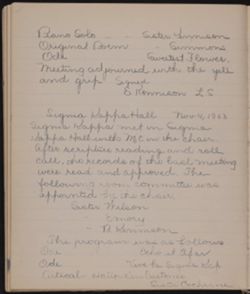 Piano Solo - - Sister Kennison
Original Poem - Simmons
Ode Sweetest Flower.
Meeting adjourned with the yell
and grip Signed
B Kennison L.S
Sigma Kappa Hall Nov 4, 1903
Sigma Kappa met in Sigma
Kappa Hall with M.C in the chair.
After scripture reading and roll
call, the records of the last meeting
were read and approved. The
following room committee was
appointed by the chair.
Sister Wilson
Emory
B Kennison
The program was as follows
Ode
Ode Sigma Kap
Critical
Sister Cochrane